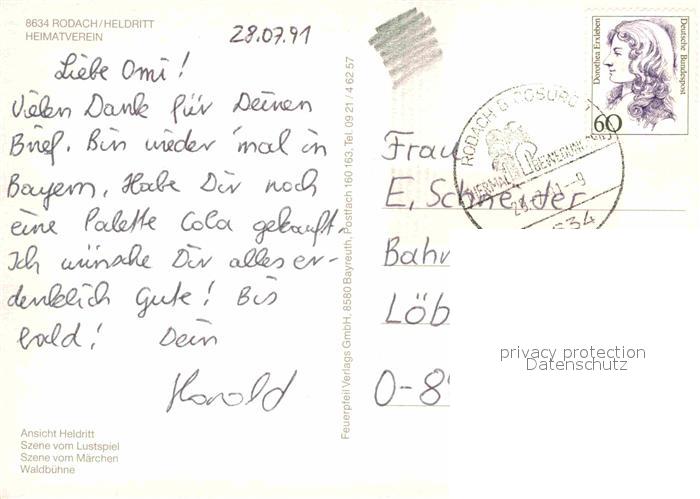 8634 RODACH/HELDRITT
HEIMATVEREIN
28.07.91
Liebe Omi!
Vielen Dank für Deinen
Brief. Bin wieder 'mal in
Bayern. Habe Dir noch
eine Palette Cola gekauft.
Ich wünsche Dir alles er-
denklich Gute! Bis
bald! Dein
Harald
Ansicht Heldritt
Szene vom Lustspiel
Szene vom Märchen
Waldbühne
Feuerpfeil Verlags GmbH, 8580 Bayreuth, Postfach 160 163, Tel. 09 21 / 4 62 57
Dorothea Erxleben
Deutsche Bundespost
60
RODACH B COBURG 1
THERMAL BEWEGUNGSBAD
28. -9
8634
Frau
E. Schneider
Bahn
Löb
O-8
privacy protection
Datenschutz